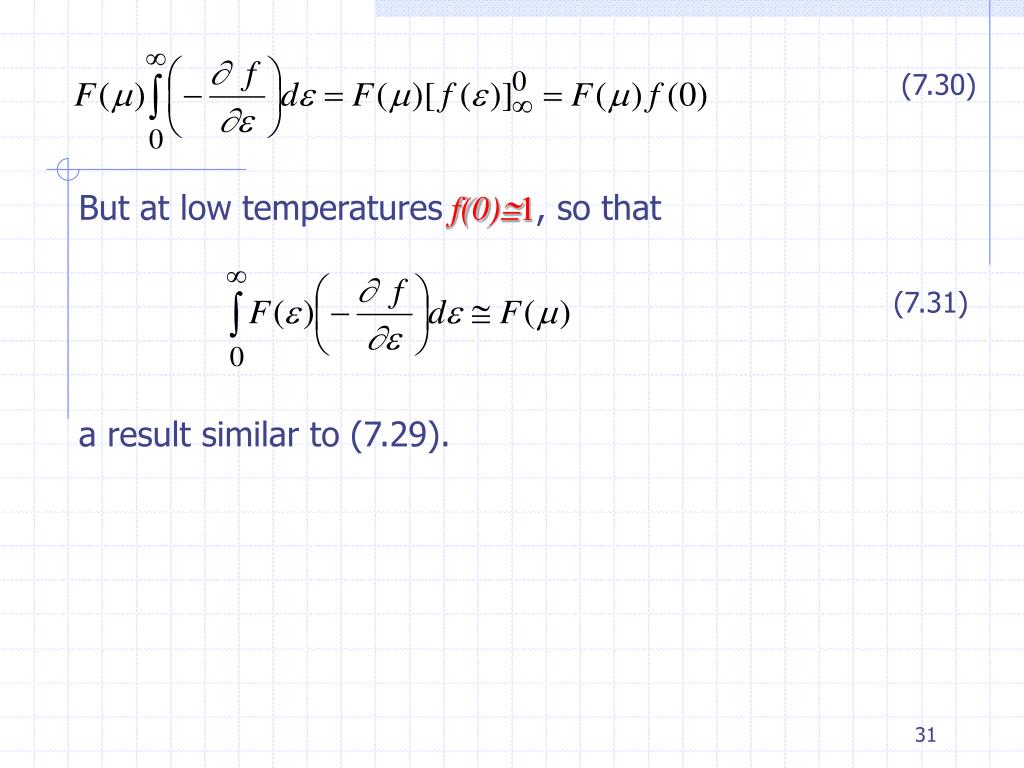 F(μ)∫₀^∞(−∂f/∂ε)dε = F(μ)[f(ε)]_∞^0 = F(μ)f(0) (7.30)
But at low temperatures f(0)≅1, so that
∫₀^∞ F(ε)(−∂f/∂ε)dε ≅ F(μ) (7.31)
a result similar to (7.29).
31